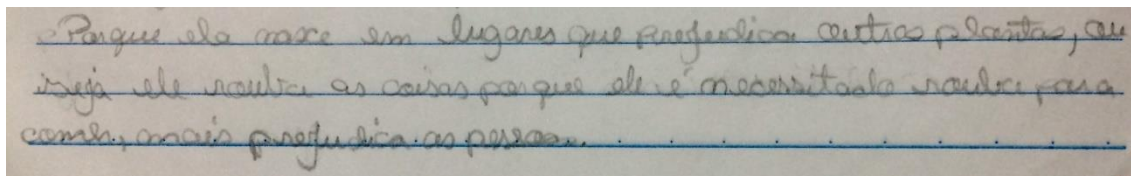 Porque ela nasce em lugares que prejudica outras plantas, ou
seja ele rouba as coisas porque ele é necessitado rouba para
comer, mais prejudica as pessoas.